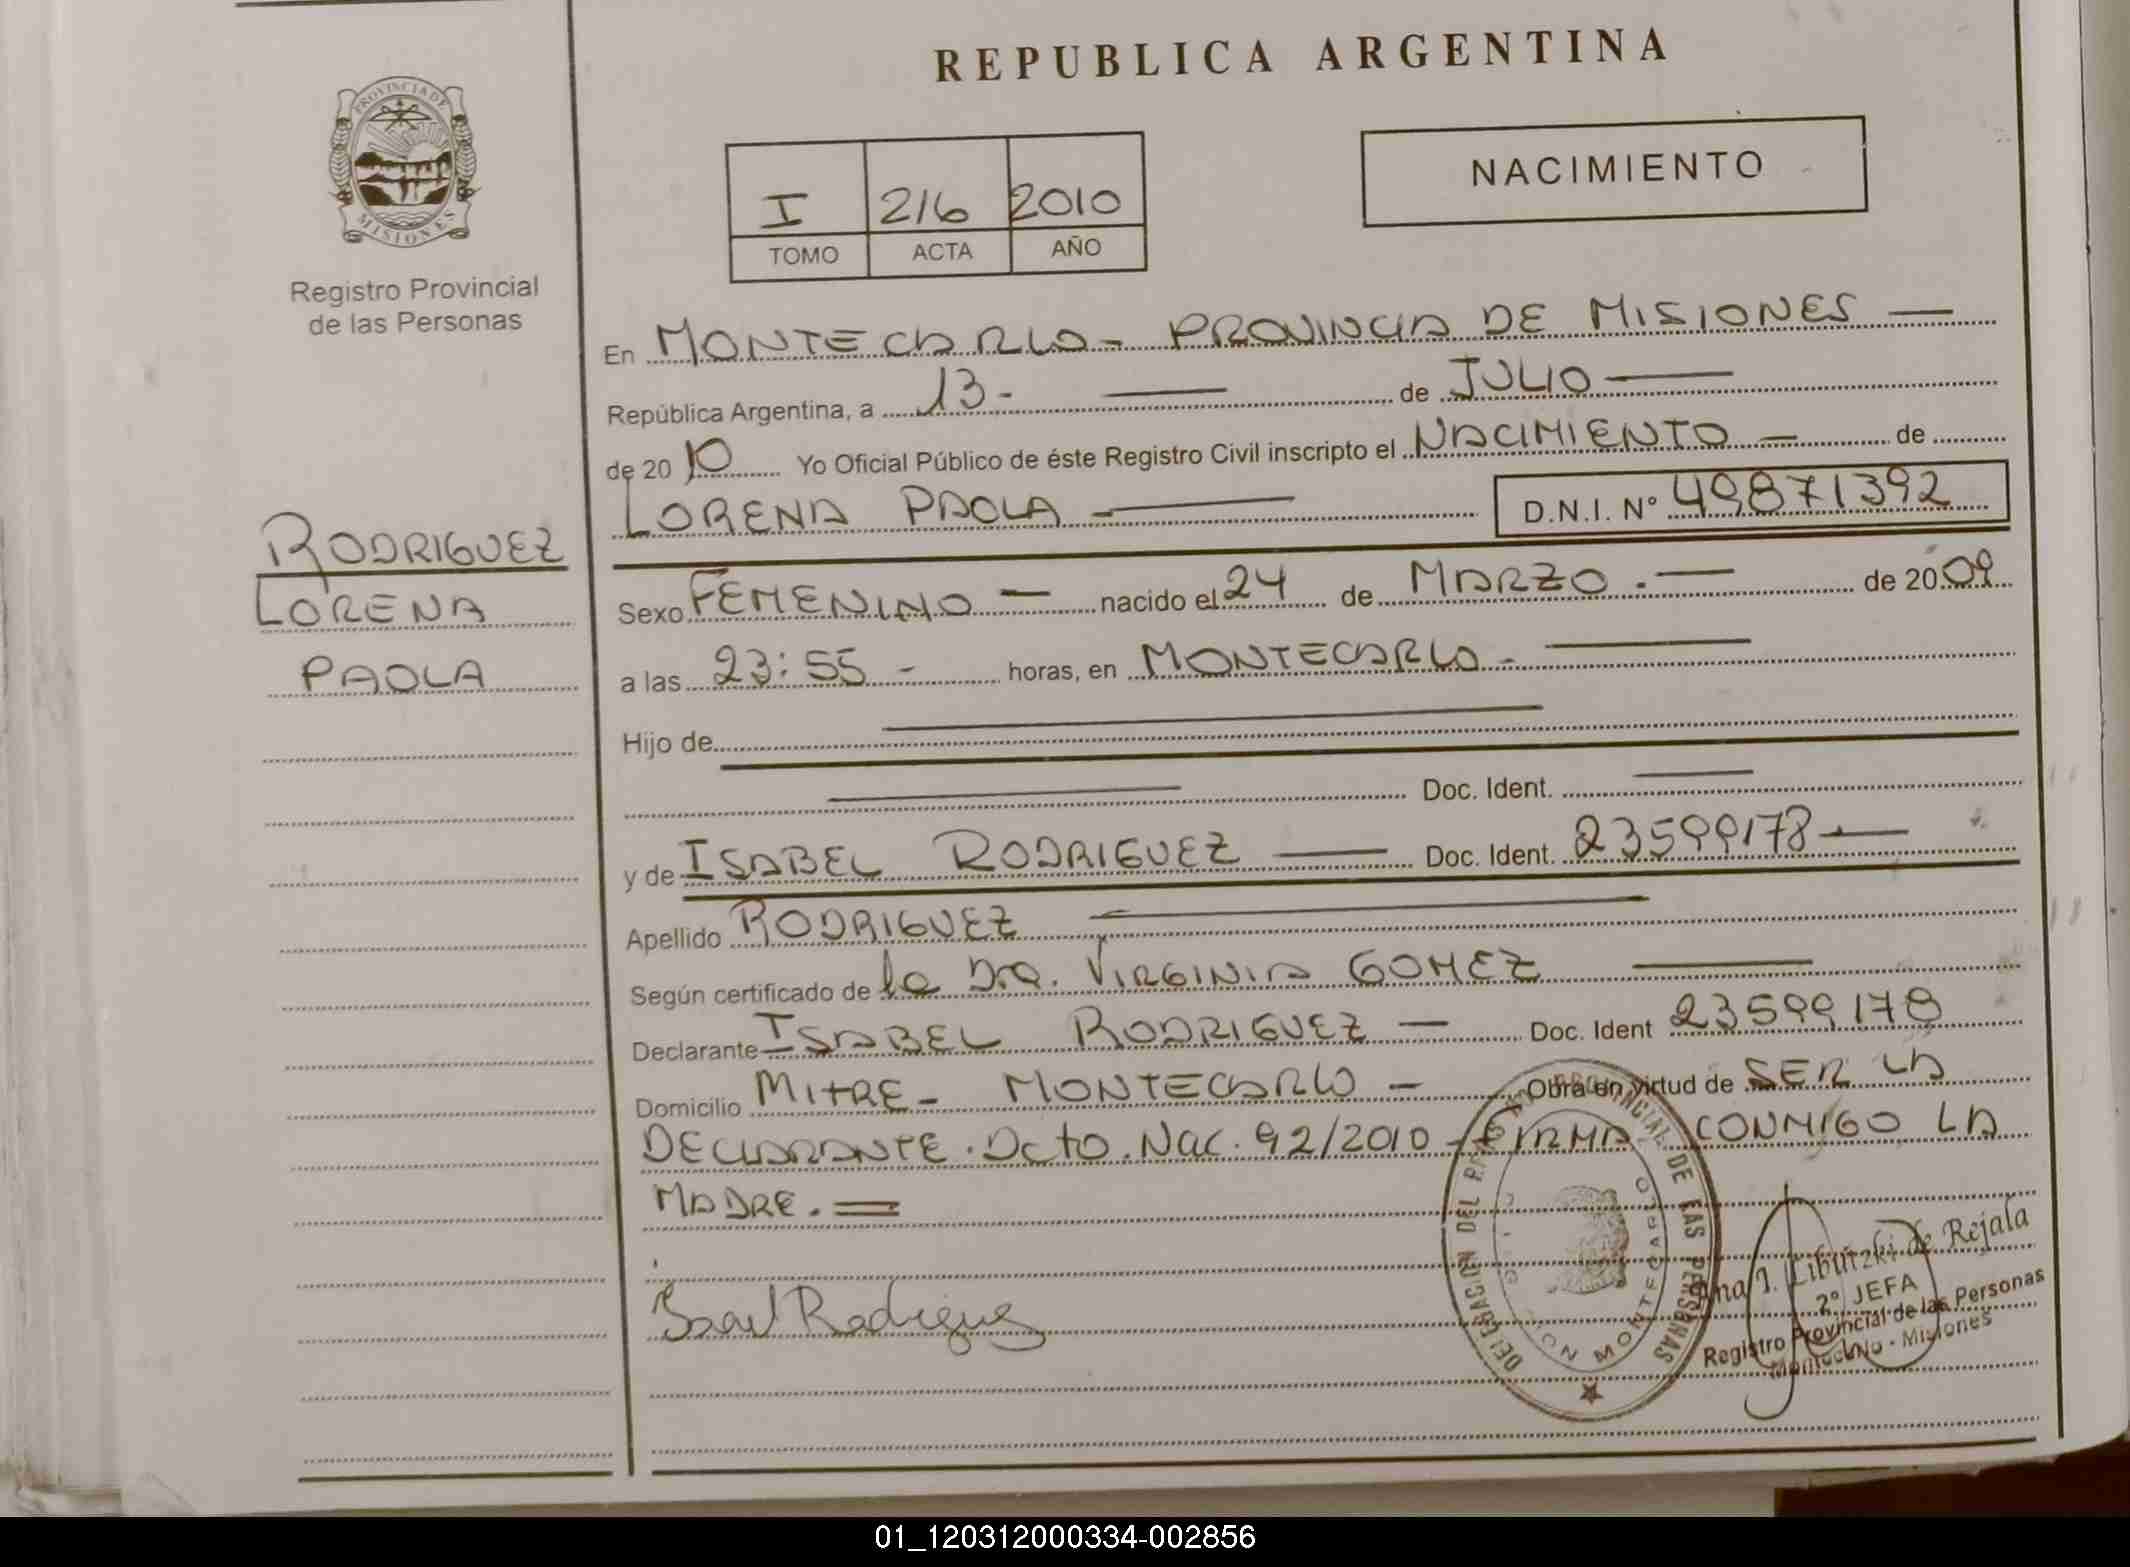 REPUBLICA ARGENTINA
PROVINCIA DE
MISIONES
Registro Provincial
de las Personas
NACIMIENTO
I 216 2010
TOMO ACTA AÑO
En MONTECARLO - PROVINCIA DE MISIONES —
República Argentina, a 13 - — de JULIO —
de 20 10 Yo Oficial Público de éste Registro Civil inscripto el NACIMIENTO — de
LORENA PAOLA — D.N.I. Nº 49871392
RODRIGUEZ
LORENA
PAOLA
Sexo FEMENINO — nacido el 24 de MARZO . — de 20 09
a las 23:55 - horas, en MONTECARLO - —
Hijo de —
— Doc. Ident. —
y de ISABEL RODRIGUEZ — Doc. Ident. 23599178 —
Apellido RODRIGUEZ —
Según certificado de la Dra. VIRGINIA GOMEZ —
Declarante ISABEL RODRIGUEZ — Doc. Ident 23599178
Domicilio MITRE - MONTECARLO — Obra en virtud de SER LA
DECLARANTE . Dcto. Nac. 92/2010 - FIRMA CONMIGO LA
MADRE . =
Isabel Rodriguez
DELEGACION DEL REGISTRO PROVINCIAL DE LAS PERSONAS
MONTECARLO
Ana J. Libutzki de Rejala
2º JEFA
Registro Provincial de las Personas
Montecarlo - Misiones
01_120312000334-002856